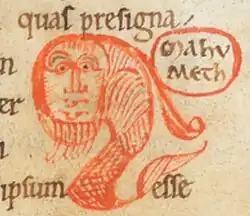 quas presigna
n
Mahu
meth
er
n
ipsum esse